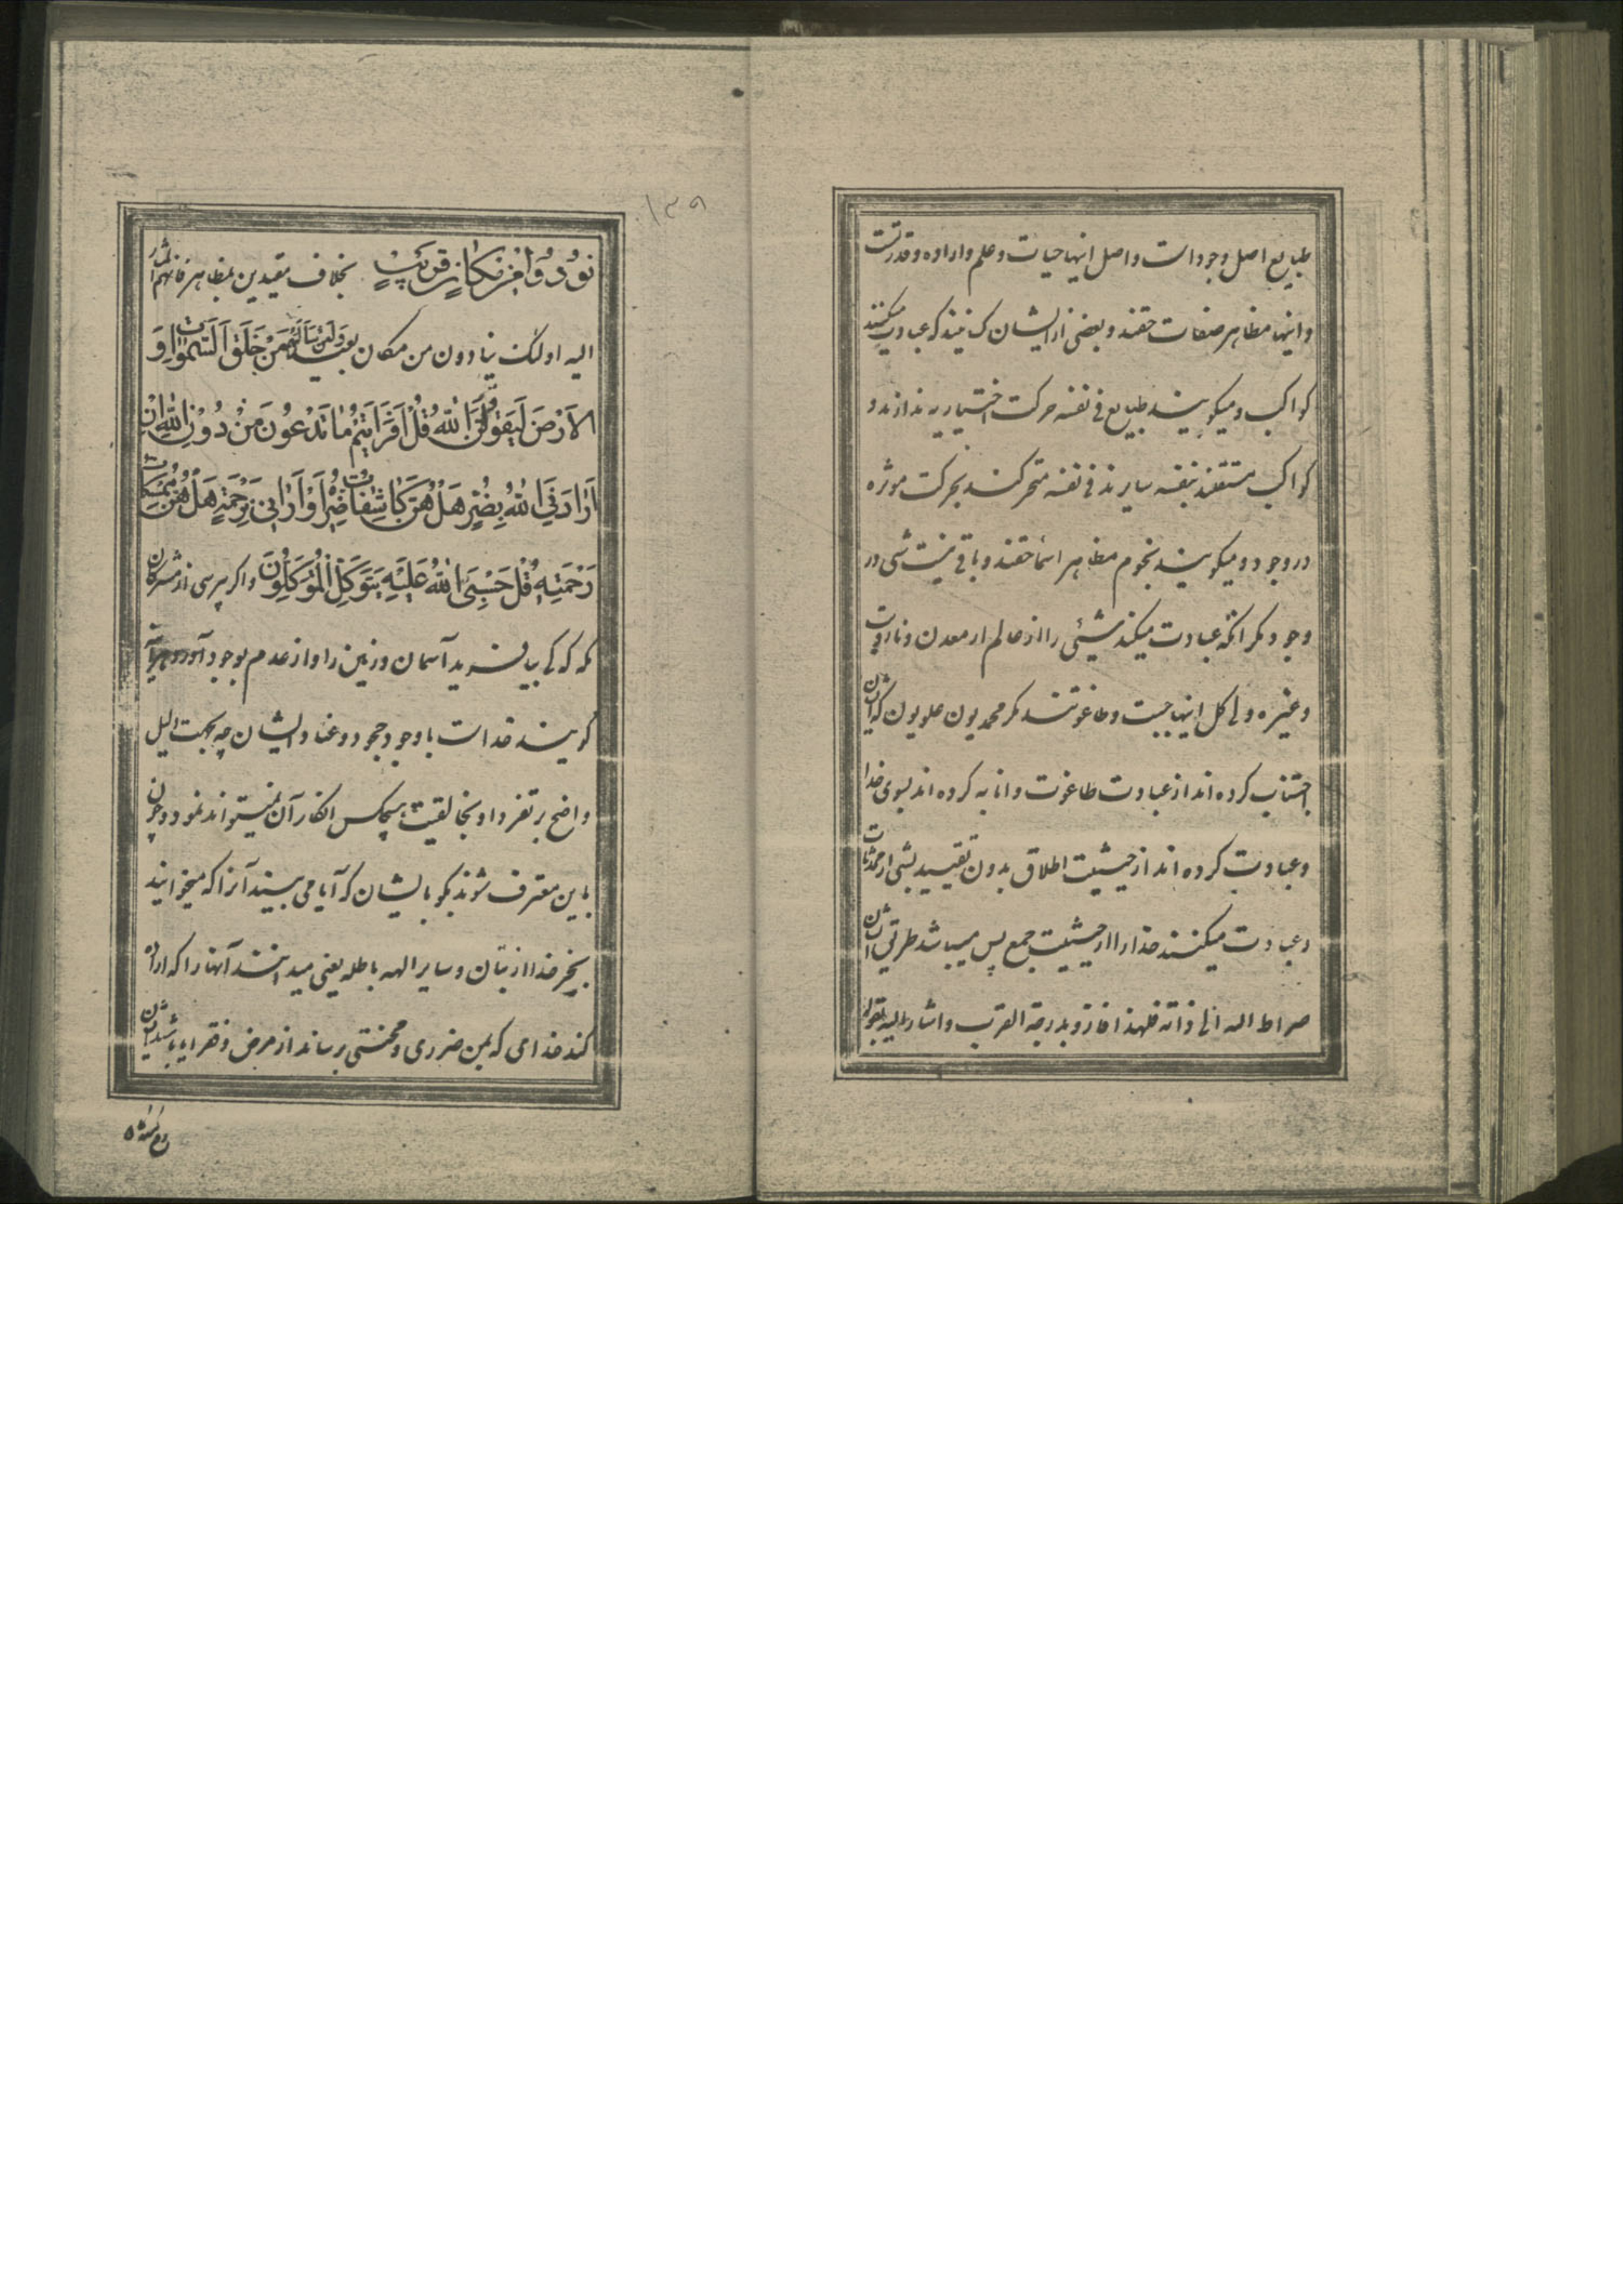 طبایع اصل وجود است و اصل اینها حیات و علم و اراده و قدرتست
و اینها مظاهر صفات حقند و بعضی از ایشان کسانیند که عبادت میکنند
کواکب و میکویند طبایع فی نفسه حرکت اختیاریه ندارند و
کواکب مستقلند بنفسه سایرند فی نفسه متحرکند بحرکت موثره
در وجود و میکویند نجوم مظاهر اسماء حقند و باقی نیست شی در
وجود مکر انکه عبادت میکند شیئی را از عالم از معدن و نار و
وغیره ولی کل اینها جبت و طاغوتند مکر محمدیون علویون که ایشان
اجتناب کرده اند از عبادت طاغوت و انابه کرده اند بسوی خدا
و عبادت کرده اند از حیثیت اطلاق بدون تقیید بشی از محدثات
و عبادت میکنند خدا را از حیثیت جمع پس میباشد طریق ایشان
صراط الله الی ذاته فلهذا فازوا بدرجة القرب و اشار الیه بقوله
۱۳۹
نُودُوا مِن مَکانٍ قَریبٍ بخلاف مقیدین بمظاهر فانهم اشار
الیه اولئک ینادون من مکان بعید وَلَئِن سَأَلْتَهُم مَن خَلَقَ السَّمواتِ وَ
الاَرْضَ لَیَقُولُنَّ اللهُ قُل اَفَرَاَیتُم ما تَدْعُونَ مِن دُونِ اللهِ اِن
اَرادَنِیَ اللهُ بِضُرٍّ هَلْ هُنَّ کاشِفاتُ ضُرِّهِ اَوْ اَرادَنی بِرَحْمَةٍ هَلْ هُنَّ مُمْسِکاتُ
رَحْمَتِهِ قُل حَسْبِیَ اللهُ عَلَیهِ یَتَوَکَّلُ الْمُتَوَکِّلُونَ و اکر پرسی از مشرکان
مکه که کی بیافرید آسمان و زمین را و از عدم بوجود آورد هرآینه
کویند خداست با وجود جحود و عناد ایشان چه بجهت دلیل
واضح بر تفرد او بخالقیت هیچکس انکار آن نمیتواند نمود و چون
باین معترف شوند بکو با ایشان که آیا می بینید آنرا که میخوانید
بغیر خدا از بتان و سایر الهه باطله یعنی میدانند آنها را که اراده
کند خدای که بمن ضرری و محنتی برساند از مرض و فقر ایا باشند ایشان